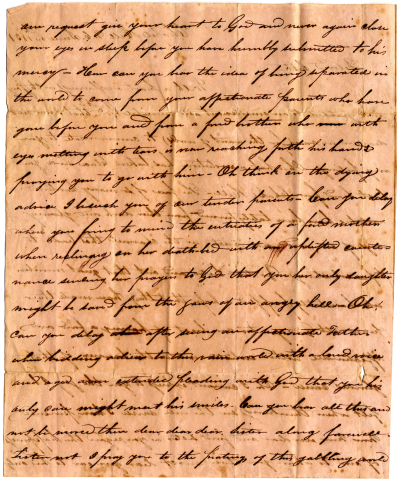 our request give your heart to God and never again close
your eye in sleep before you have humbly submitted to his
mercy — How can you bear the idea of being separated in
the world to come from your affectionate Parents who have
gone before you and from a fond brother who now with
eyes melting with tears is now reaching forth his hands
praying you to go with him — Oh think on the dying
advice I beseech you of our tender parents — Can you delay
when you bring to mind the entreaties of a fond mother
when reclining on her deathbed with an uplifted counte-
nance sending her prayer to God that you her only daughter
might be saved from the jaws of an angry hell — Oh!
Can you delay after seeing an affectionate Father
when bidding adieu to this vain world with a loud voice
and aged arms extended pleading with God that you his
only care might meet his smiles. Can you bear all this and
not be moved then dear dear dear Sister along farewell
Listen not I pray you to the prating of this gabbling world